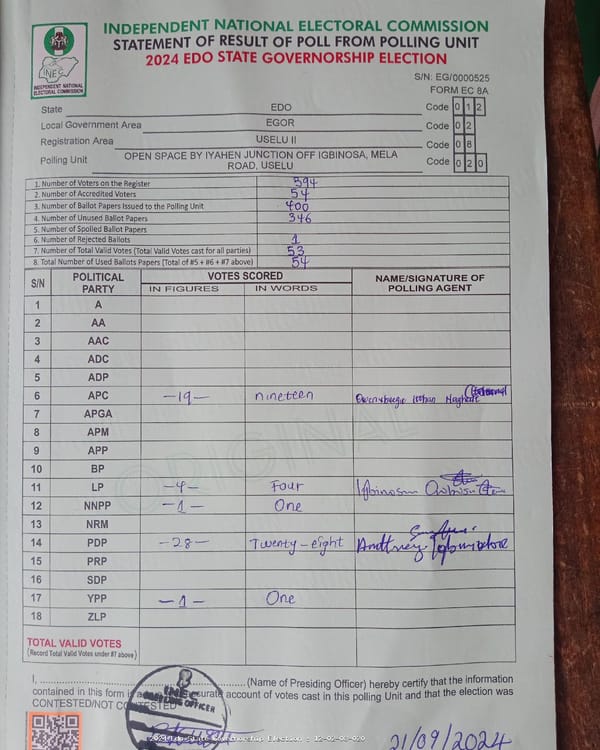 INDEPENDENT NATIONAL ELECTORAL COMMISSION
STATEMENT OF RESULT OF POLL FROM POLLING UNIT
2024 EDO STATE GOVERNORSHIP ELECTION
INEC
INDEPENDENT NATIONAL
ELECTORAL COMMISSION
S/N: EG/0000525
FORM EC 8A
State EDO Code 0 1 2
Local Government Area EGOR Code 0 2
Registration Area USELU II Code 0 8
Polling Unit OPEN SPACE BY IYAHEN JUNCTION OFF IGBINOSA, MELA ROAD, USELU Code 0 2 0
1. Number of Voters on the Register 594
2. Number of Accredited Voters 54
3. Number of Ballot Papers Issued to the Polling Unit 400
4. Number of Unused Ballot Papers 346
5. Number of Spoiled Ballot Papers
6. Number of Rejected Ballots 1
7. Number of Total Valid Votes (Total Valid Votes cast for all parties) 53
8. Total Number of Used Ballots Papers (Total of #5 + #6 + #7 above) 54
S/N POLITICAL PARTY VOTES SCORED NAME/SIGNATURE OF POLLING AGENT
IN FIGURES IN WORDS
1 A
2 AA
3 AAC
4 ADC
5 ADP
6 APC -19- nineteen
7 APGA
8 APM
9 APP
10 BP
11 LP -4- Four
12 NNPP -1- One
13 NRM
14 PDP -28- Twenty-eight
15 PRP
16 SDP
17 YPP -1- One
18 ZLP
TOTAL VALID VOTES
(Record Total Valid Votes under #7 above)
I, (Name of Presiding Officer) hereby certify that the information
contained in this form is a accurate account of votes cast in this polling Unit and that the election was
CONTESTED/NOT CONTESTED
INEC
OFFICER
21/09/2024